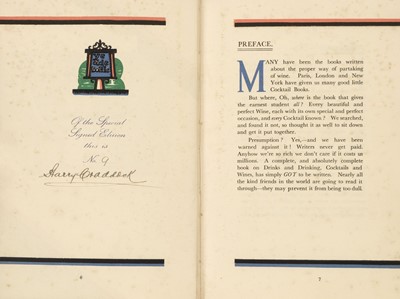 Of the Special
Signed Edition
this is
No 9
Harry Craddock
6
PREFACE.
MANY have been the books written
about the proper way of partaking
of wine. Paris, London and New
York have given us many good little
Cocktail Books.
But where, Oh, where is the book that gives
the earnest student all? Every beautiful and
perfect Wine, each with its own special and perfect
occasion, and every Cocktail known? We searched,
and found it not, so thought it as well to sit down
and get it put together.
Presumption? Yes,—and we have been
warned against it! Writers never get paid.
Anyhow we're so rich we don't care if it costs us
millions. A complete, and absolutely complete
book on Drinks and Drinking, Cocktails and
Wines, has simply GOT to be written. Nearly all
the kind friends in the world are going to read it
through—they may prevent it from being too dull.
7